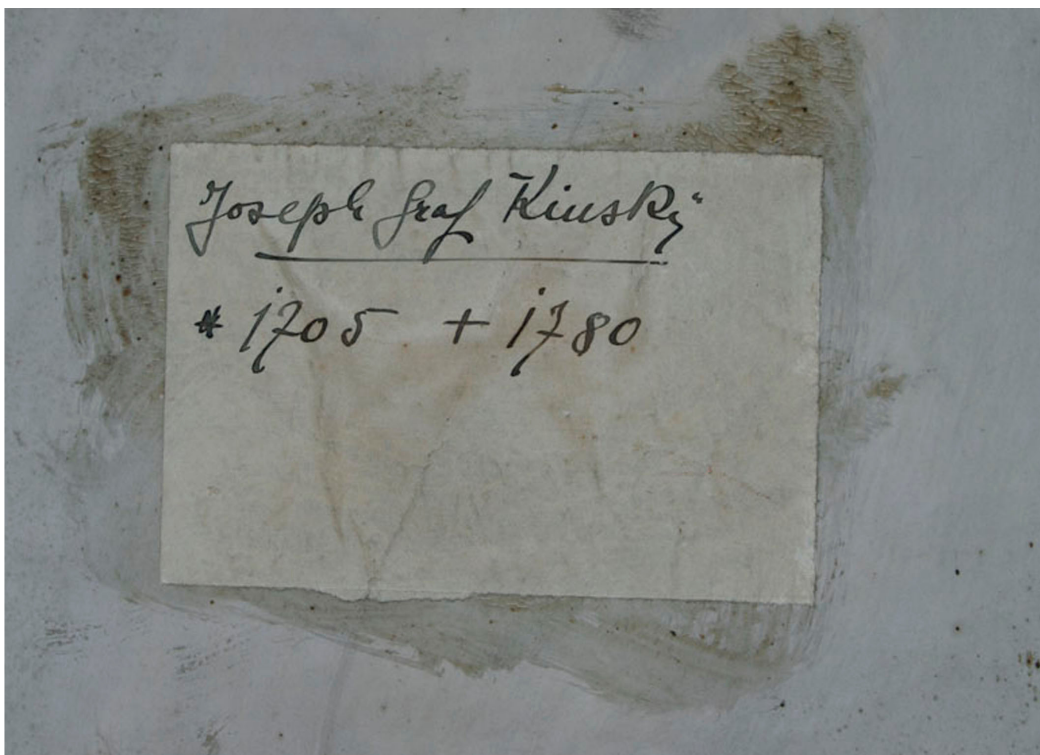 Joseph Graf Kinsky
* 1705 + 1780